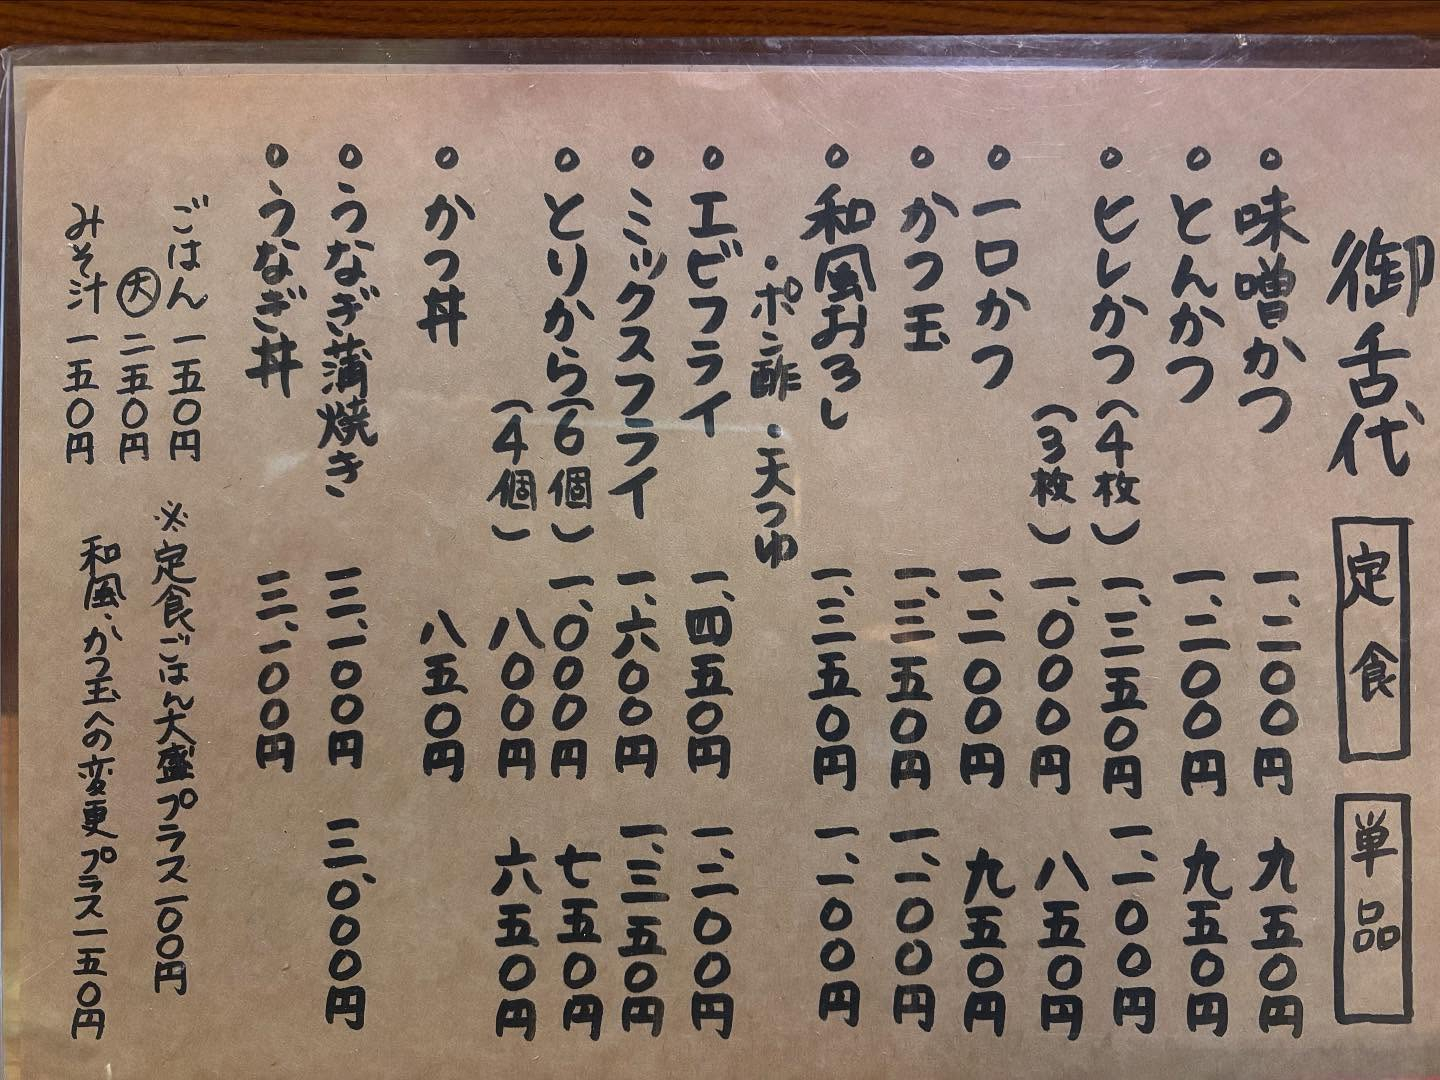 御舌代 定食 単品
。味噌かつ 一、二〇〇円 九五〇円
。とんかつ 一、二〇〇円 九五〇円
。ヒレかつ(4枚) 一、三五〇円 一、一〇〇円
(3枚) 一、〇〇〇円 八五〇円
。一口かつ 一、二〇〇円 九五〇円
。かつ玉 一、三五〇円 一、一〇〇円
。和風おろし 一、三五〇円 一、一〇〇円
・ポン酢 ・天つゆ
。エビフライ 一、四五〇円 一、二〇〇円
。ミックスフライ 一、六〇〇円 一、三五〇円
。とりから(6個) 一、〇〇〇円 七五〇円
(4個) 八〇〇円 六五〇円
。かつ丼 八五〇円
。うなぎ蒲焼き 三、一〇〇円 三、〇〇〇円
。うなぎ丼 三、一〇〇円
ごはん 一五〇円
大 二五〇円
みそ汁 一五〇円
※定食ごはん大盛プラス一〇〇円
和風、かつ玉への変更プラス一五〇円